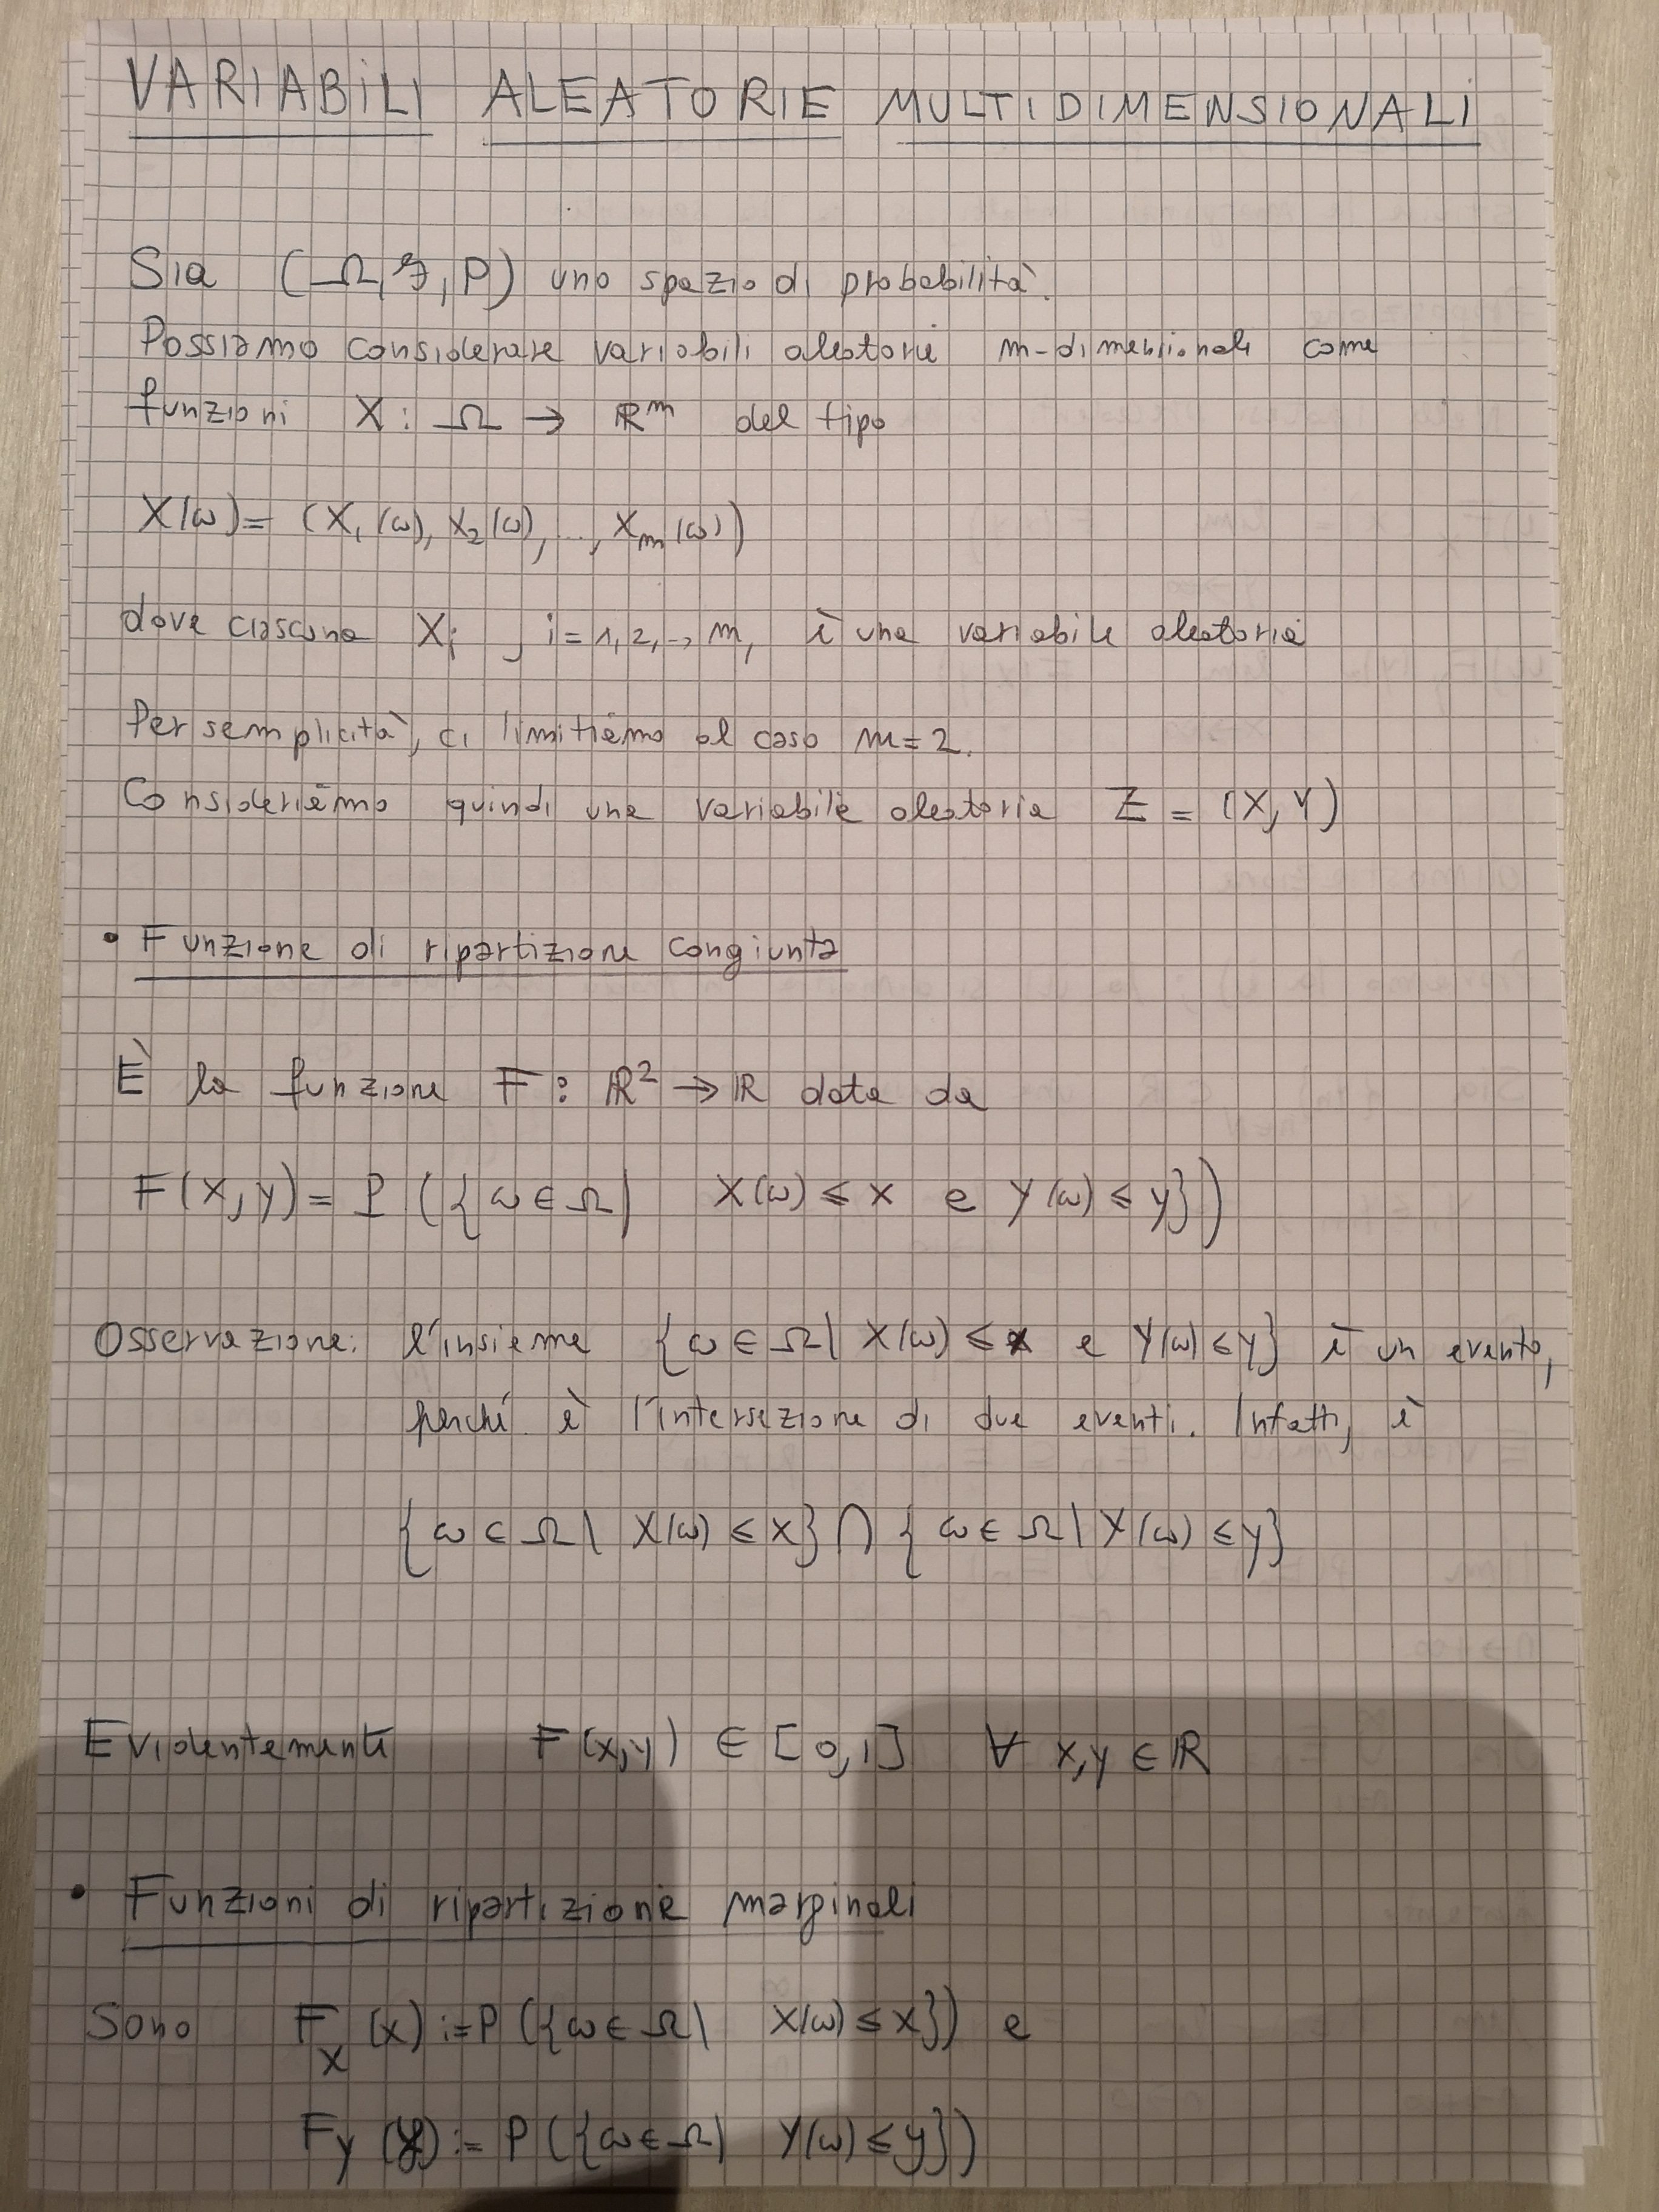 VARIABILI ALEATORIE MULTIDIMENSIONALI
Sia (Ω, ℱ, P) uno spazio di probabilità.
Possiamo considerare variabili aleatorie m-dimensionali come
funzioni X : Ω → ℝᵐ del tipo
X(ω) = (X₁(ω), X₂(ω), ..., Xₘ(ω))
dove ciascuna Xᵢ, i = 1, 2, .., m, è una variabile aleatoria
Per semplicità, ci limitiamo al caso m = 2.
Consideriamo quindi una variabile aleatoria Z = (X, Y)
• Funzione di ripartizione congiunta
È la funzione F : ℝ² → ℝ data da
F(x, y) = P({ω ∈ Ω | X(ω) ≤ x e Y(ω) ≤ y})
Osservazione: l'insieme {ω ∈ Ω | X(ω) ≤ x e Y(ω) ≤ y} è un evento,
perché è l'intersezione di due eventi. Infatti, è
{ω ∈ Ω | X(ω) ≤ x} ∩ {ω ∈ Ω | Y(ω) ≤ y}
Evidentemente F(x,y) ∈ [0,1] ∀ x,y ∈ ℝ
• Funzioni di ripartizione marginali
Sono F_X (x) := P({ω ∈ Ω | X(ω) ≤ x}) e
F_Y (y) := P({ω ∈ Ω | Y(ω) ≤ y})